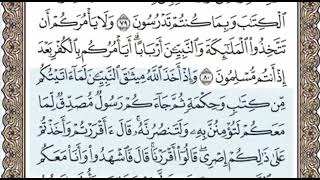 ٱلۡكِتَٰبَ وَبِمَا كُنتُمۡ تَدۡرُسُونَ ٧٩ وَلَا يَأۡمُرَكُمۡ أَن
تَتَّخِذُواْ ٱلۡمَلَٰٓئِكَةَ وَٱلنَّبِيِّـۧنَ أَرۡبَابًاۗ أَيَأۡمُرُكُم بِٱلۡكُفۡرِ بَعۡدَ
إِذۡ أَنتُم مُّسۡلِمُونَ ٨٠ وَإِذۡ أَخَذَ ٱللَّهُ مِيثَٰقَ ٱلنَّبِيِّـۧنَ لَمَآ ءَاتَيۡتُكُم
مِّن كِتَٰبٖ وَحِكۡمَةٖ ثُمَّ جَآءَكُمۡ رَسُولٞ مُّصَدِّقٞ لِّمَا
مَعَكُمۡ لَتُؤۡمِنُنَّ بِهِۦ وَلَتَنصُرُنَّهُۥۚ قَالَ ءَأَقۡرَرۡتُمۡ وَأَخَذۡتُمۡ
عَلَىٰ ذَٰلِكُمۡ إِصۡرِيۖ قَالُوٓاْ أَقۡرَرۡنَاۚ قَالَ فَٱشۡهَدُواْ وَأَنَا۠ مَعَكُم